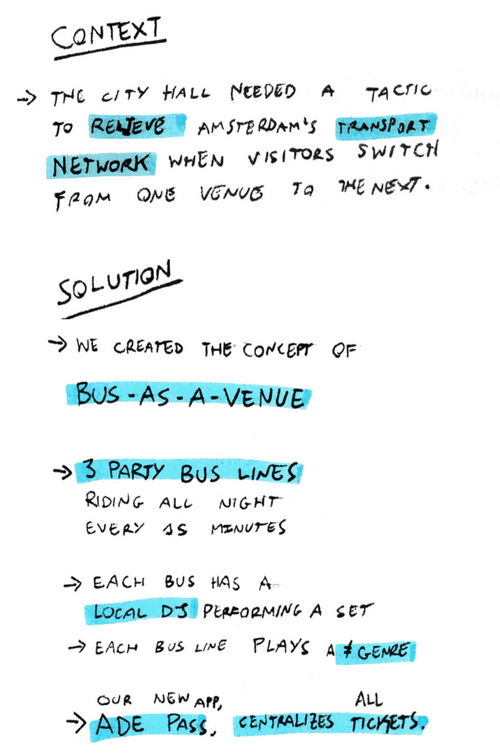 CONTEXT
→ THE CITY HALL NEEDED A TACTIC
TO RELIEVE AMSTERDAM'S TRANSPORT
NETWORK WHEN VISITORS SWITCH
FROM ONE VENUE TO THE NEXT.
SOLUTION
→ WE CREATED THE CONCEPT OF
BUS-AS-A-VENUE
→ 3 PARTY BUS LINES
RIDING ALL NIGHT
EVERY 15 MINUTES
→ EACH BUS HAS A
LOCAL DJ PERFORMING A SET
→ EACH BUS LINE PLAYS A ≠ GENRE
OUR NEW APP, ALL
→ ADE PASS, CENTRALIZES TICKETS.